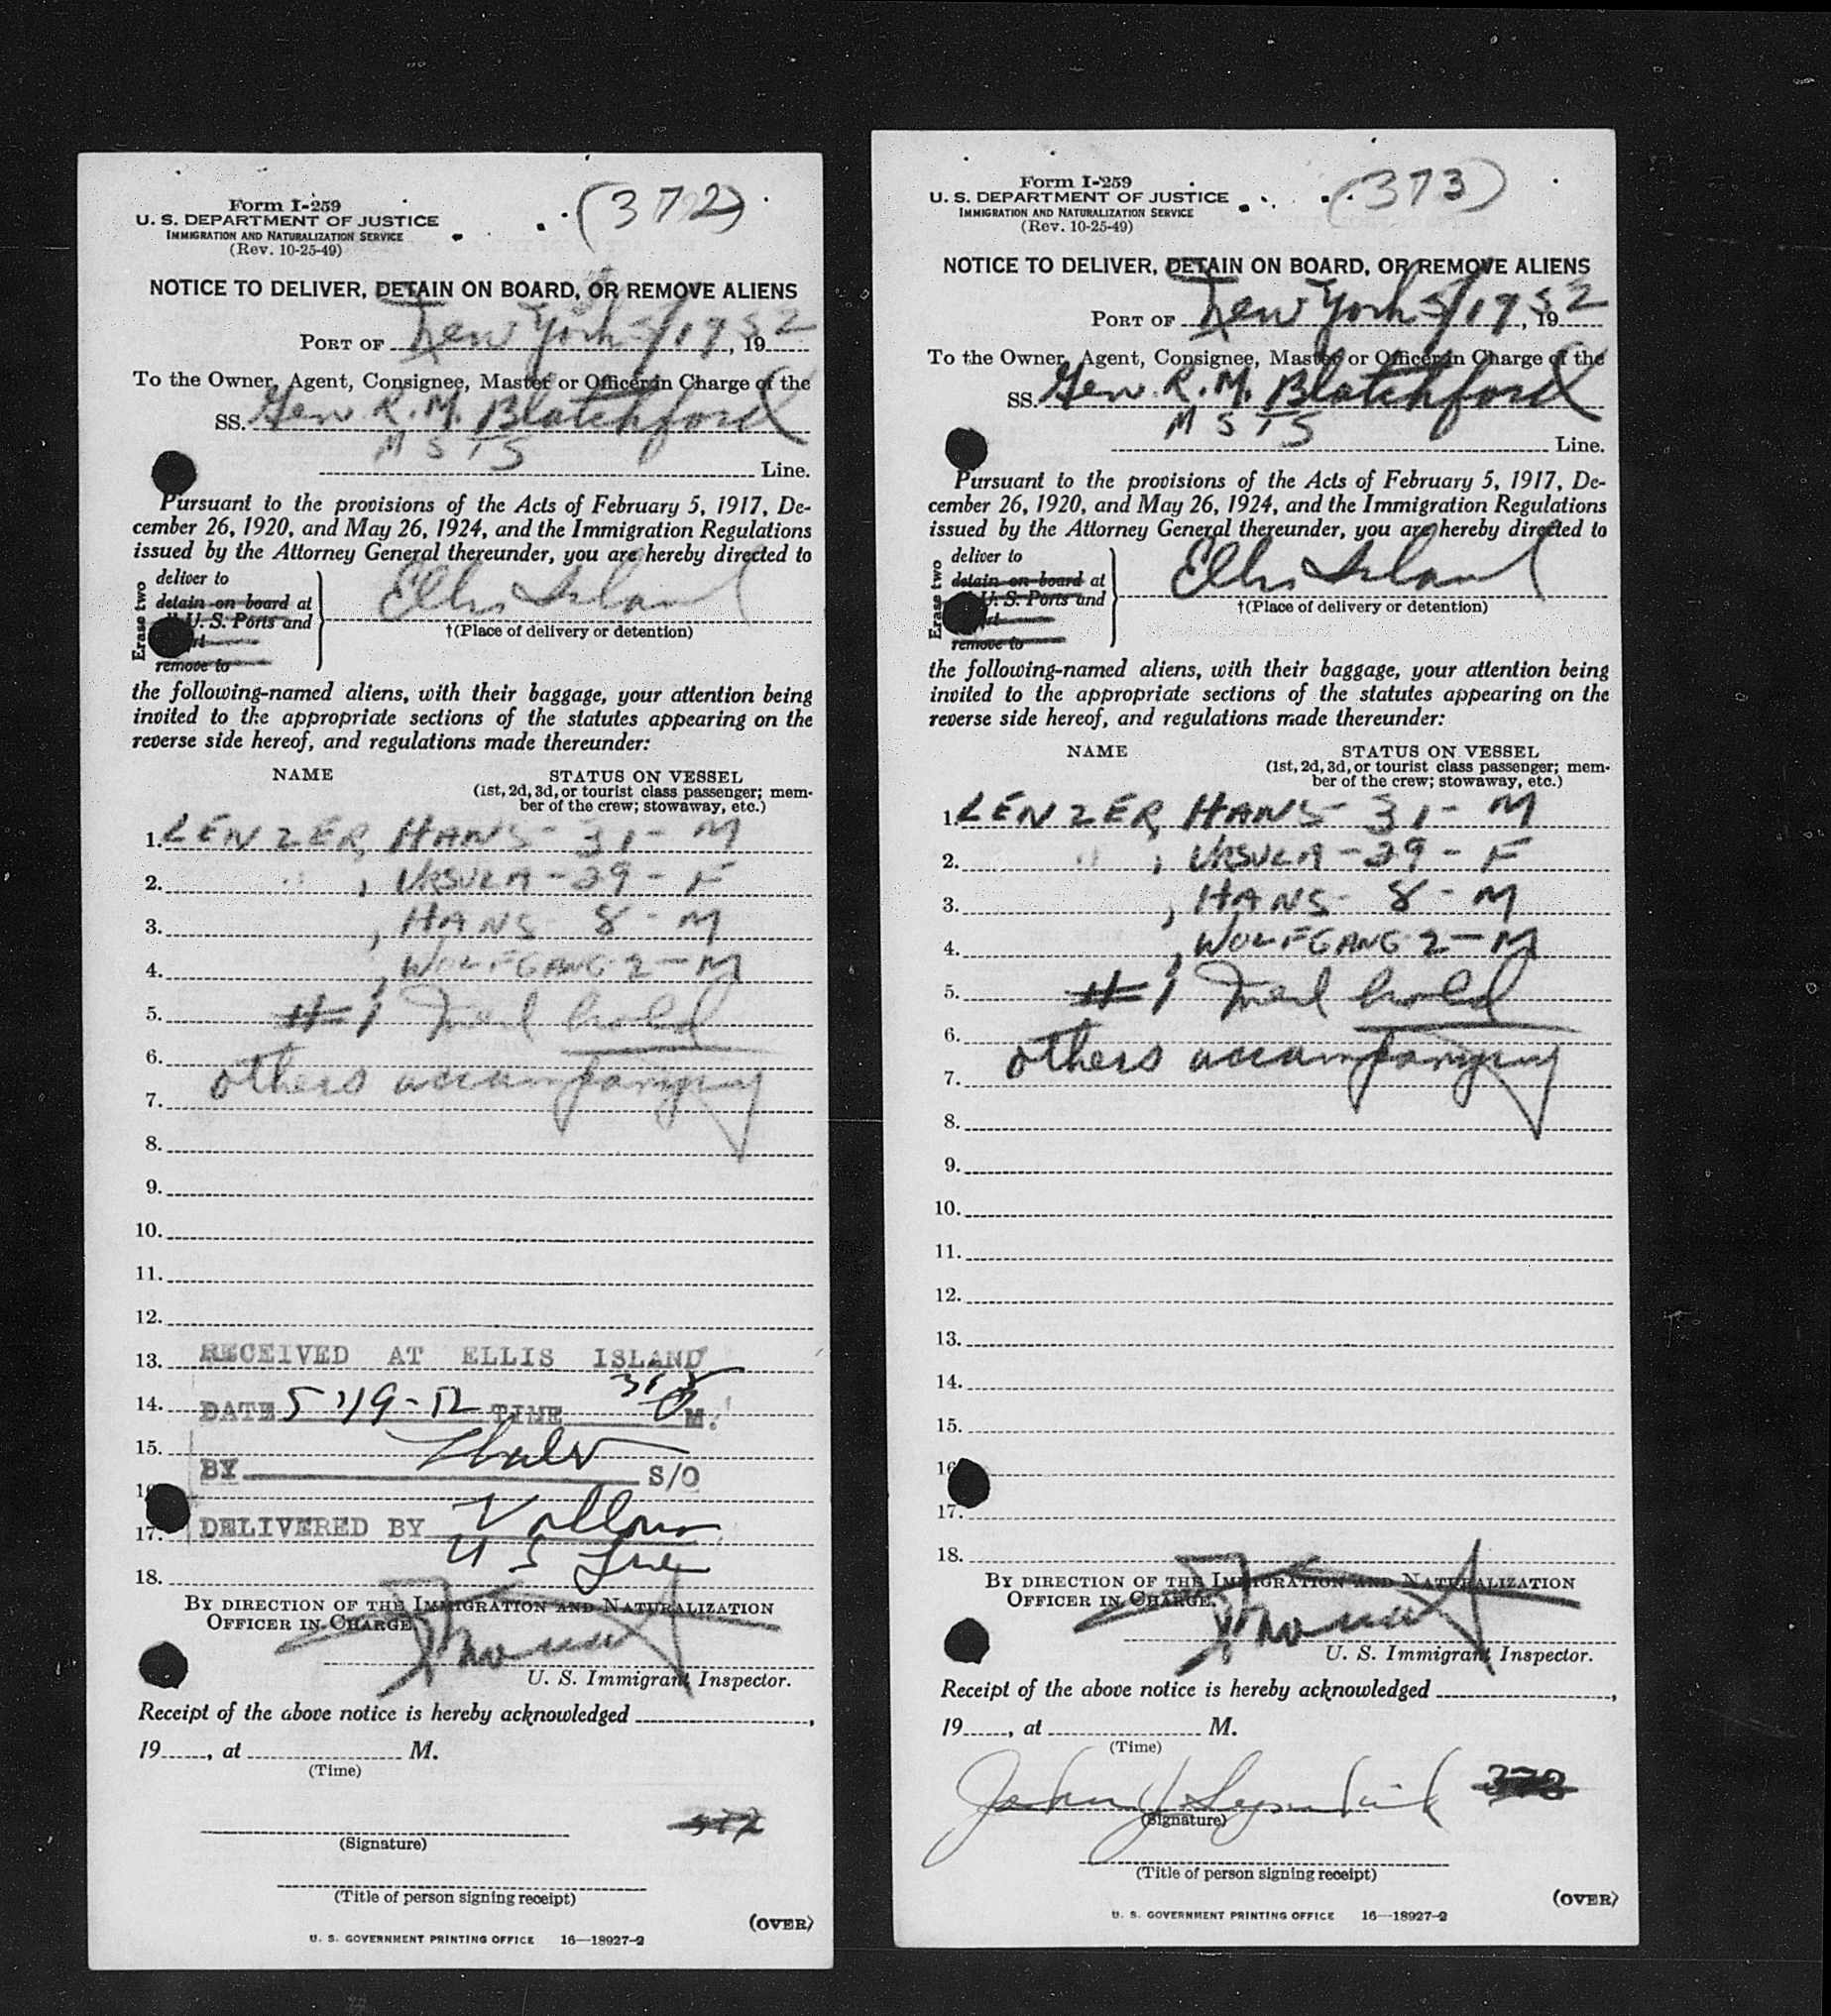 Form I-259
U. S. DEPARTMENT OF JUSTICE
IMMIGRATION AND NATURALIZATION SERVICE
(Rev. 10-25-49)
(372)
NOTICE TO DELIVER, DETAIN ON BOARD, OR REMOVE ALIENS
PORT OF New York 5/19, 1952
To the Owner, Agent, Consignee, Master or Officer in Charge of the
SS. Gen. R. M. Blatchford
MSTS Line.
Pursuant to the provisions of the Acts of February 5, 1917, De-
cember 26, 1920, and May 26, 1924, and the Immigration Regulations
issued by the Attorney General thereunder, you are hereby directed to
Erase two
deliver to
detain on board at
U. S. Ports and
remove to
Ellis Island
†(Place of delivery or detention)
the following-named aliens, with their baggage, your attention being
invited to the appropriate sections of the statutes appearing on the
reverse side hereof, and regulations made thereunder:
NAME STATUS ON VESSEL
(1st, 2d, 3d, or tourist class passenger; mem-
ber of the crew; stowaway, etc.)
1. LENZER, HANS - 31 - M
2. " , URSULA - 29 - F
3. , HANS - 8 - M
4. , WOLFGANG - 2 - M
5. #1 Med hold
6.
others accompanying
7.
8.
9.
10.
11.
12.
13. RECEIVED AT ELLIS ISLAND
14. DATE 5-19-52 TIME M.
15.
BY S/O
16
17. DELIVERED BY
U S Line
18.
BY DIRECTION OF THE IMMIGRATION AND NATURALIZATION
OFFICER IN CHARGE.
U. S. Immigrant Inspector.
Receipt of the above notice is hereby acknowledged ,
19 , at M.
(Time)
372
(Signature)
(Title of person signing receipt)
(OVER)
U. S. GOVERNMENT PRINTING OFFICE 16—18927-2
Form I-259
U. S. DEPARTMENT OF JUSTICE
IMMIGRATION AND NATURALIZATION SERVICE
(Rev. 10-25-49)
(373)
NOTICE TO DELIVER, DETAIN ON BOARD, OR REMOVE ALIENS
PORT OF New York 5/19, 1952
To the Owner, Agent, Consignee, Master or Officer in Charge of the
SS. Gen. R. M. Blatchford
MSTS Line.
Pursuant to the provisions of the Acts of February 5, 1917, De-
cember 26, 1920, and May 26, 1924, and the Immigration Regulations
issued by the Attorney General thereunder, you are hereby directed to
Erase two
deliver to
detain on board at
U. S. Ports and
remove to
Ellis Island
†(Place of delivery or detention)
the following-named aliens, with their baggage, your attention being
invited to the appropriate sections of the statutes appearing on the
reverse side hereof, and regulations made thereunder:
NAME STATUS ON VESSEL
(1st, 2d, 3d, or tourist class passenger; mem-
ber of the crew; stowaway, etc.)
1. LENZER, HANS - 31 - M
2. " , URSULA - 29 - F
3. , HANS - 8 - M
4. , WOLFGANG - 2 - M
5. #1 Med hold
6.
others accompanying
7.
8.
9.
10.
11.
12.
13.
14.
15.
16
17.
18.
BY DIRECTION OF THE IMMIGRATION AND NATURALIZATION
OFFICER IN CHARGE.
U. S. Immigrant Inspector.
Receipt of the above notice is hereby acknowledged ,
19 , at M.
(Time)
John J 373
(Signature)
(Title of person signing receipt)
(OVER)
U. S. GOVERNMENT PRINTING OFFICE 16—18927-2